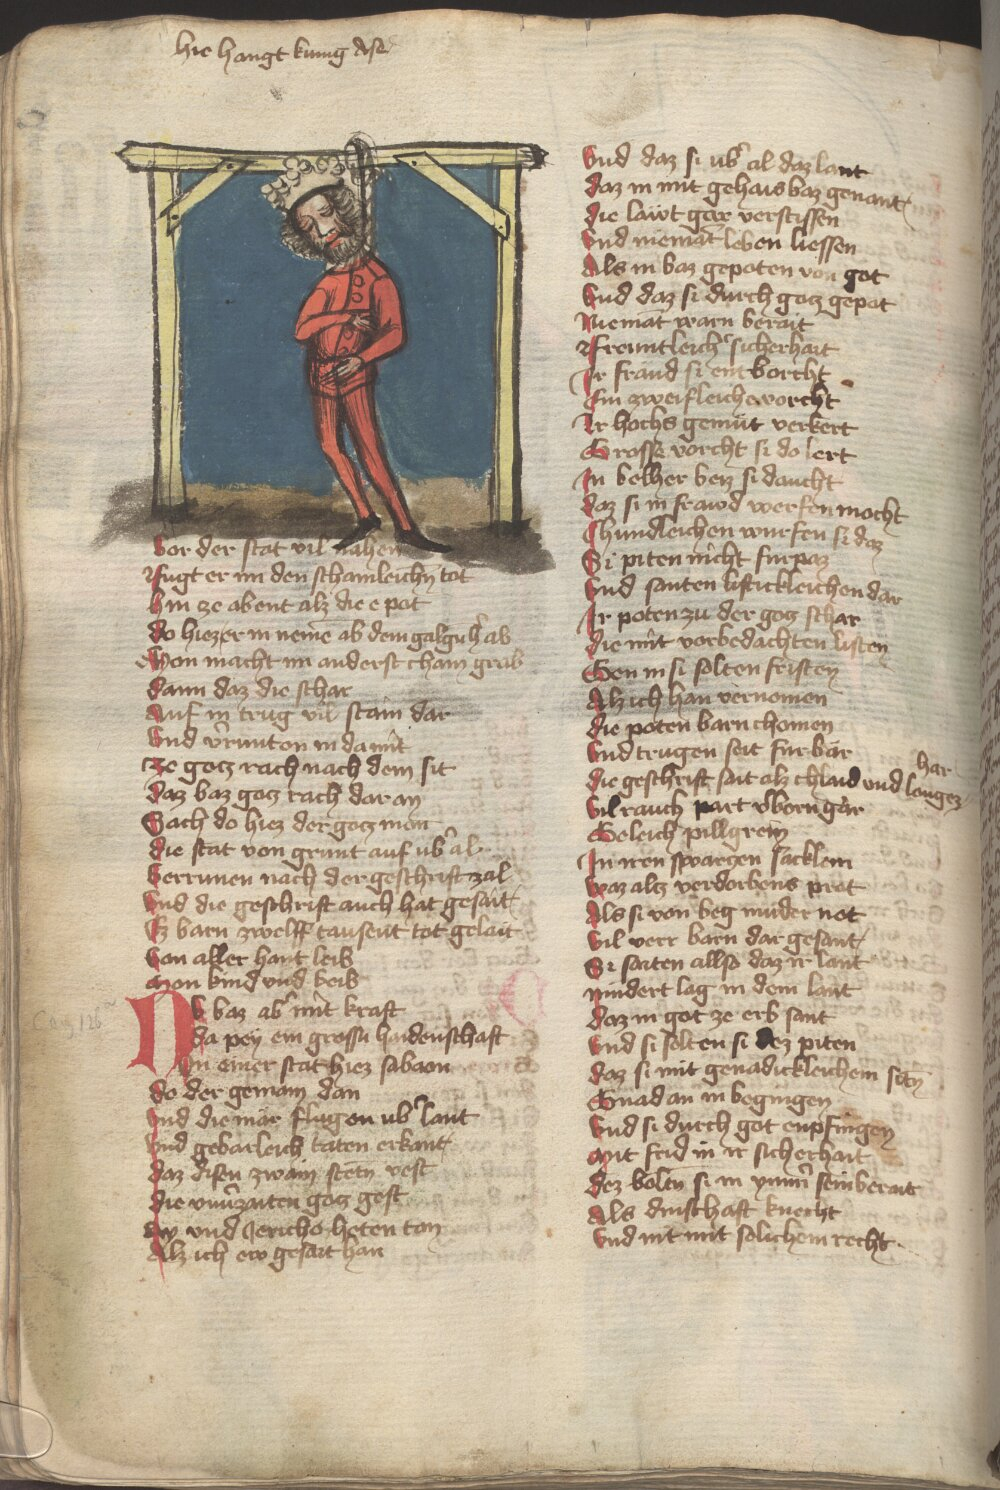 hie hangt kunig Ase
Vor der stat vil nahen
Fugt er im den schamleichn tot
Hin ze abent alz die e pot
do hiez er in neme ab dem galgn h'ab
Von macht im anderst cham grab
dann daz die schar
Auf in trug vil stain dar
Vnd v'runton in da mit
ze gotz rach nach dem sit
daz baz gotz rach dar an
Nach do hiez der gotz man
die stat von grunt auf vb' al
verrinnen nach der geschrift zal
Vnd die geschrift auch hat gesait
Ez barn zwelff tausent tot gelait
Von aller hant leib
Mon kind vnd beib
NV baz ab' mit kraft
da pey ein grossu haidenschaft
In einer stat hiez sabaon
do der gemain dan
Vnd die mär flugen vb' lant
Vnd gebarleich taten erkant
daz disen zwain stetn vest
die vnu'zaiten gotz gest
Ay vnd Jericho heten tan
Alz ich ew gesait han
Vnd daz si vb' al daz lant
daz in mit gehais baz genant
die läwt gar verstissen
Vnd niemāt leben liessen
Als in baz gepoten von got
Vnd daz si durch gotz gepot
Niemāt warn berait
Freuntleich' sicherhait
Ir fräud si entborcht
Ein zweifleich vorcht
Ir hochs gemüt verkert
Grosse vorcht si do lert
In belher beiz si daucht
daz si in frawd werfen mocht
Chundleichen wurfen si daz
Si piten nicht furpaz
Vnd santen listickleichen dar
Ir poten zu der gotz schar
die mit vorbedachten listen
Gen in si solten fristen
Alz ich han vernomen
die poten barn chomen
Vnd trugen seit fur bar
die geschrift sait alz chlaid vnd langez har
Vil rauch part v'born gar
Geleich pillgreim
In iren swartzen säcklein
Waz altz verdorbens prot
Als si von beg müder not
Vil verr barn dar gesant
Si saiten allso daz ir lant
nindert lag in dem lant
daz in got ze erb sant
Vnd si solten si dez piten
daz si mit genadickleichem sitn
Gnad an in begingen
Vnd si durch got enpfingen
Mit frid in ir sicherhait
dez boltn si in ymm' sein berait
Als dinschaft knecht
Vnd nit mit solichem recht